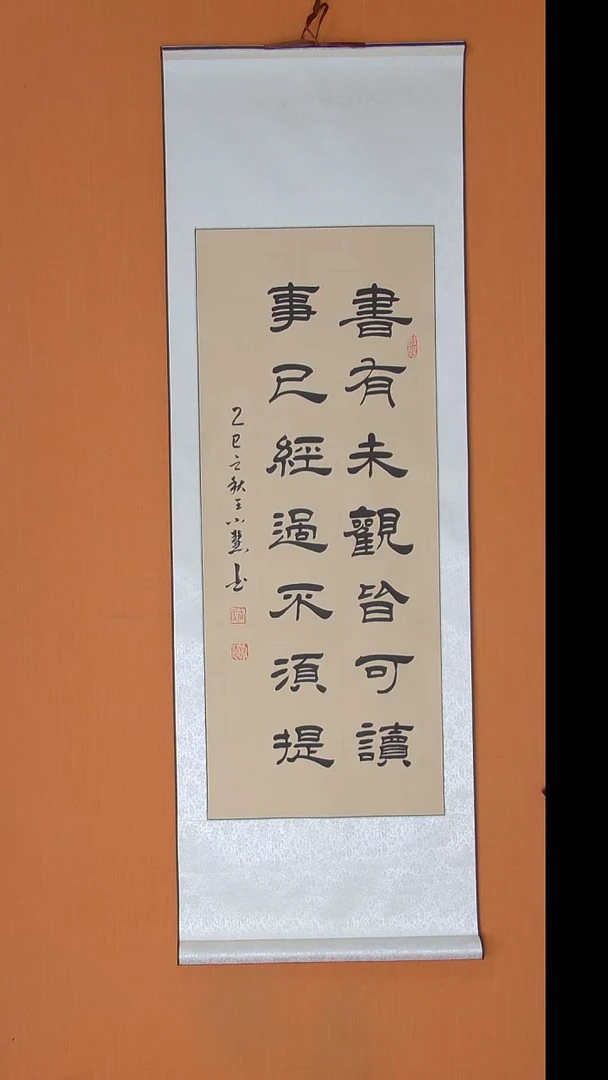 書有未觀皆可讀
事已經過不須提
乙巳之秋王小慧书